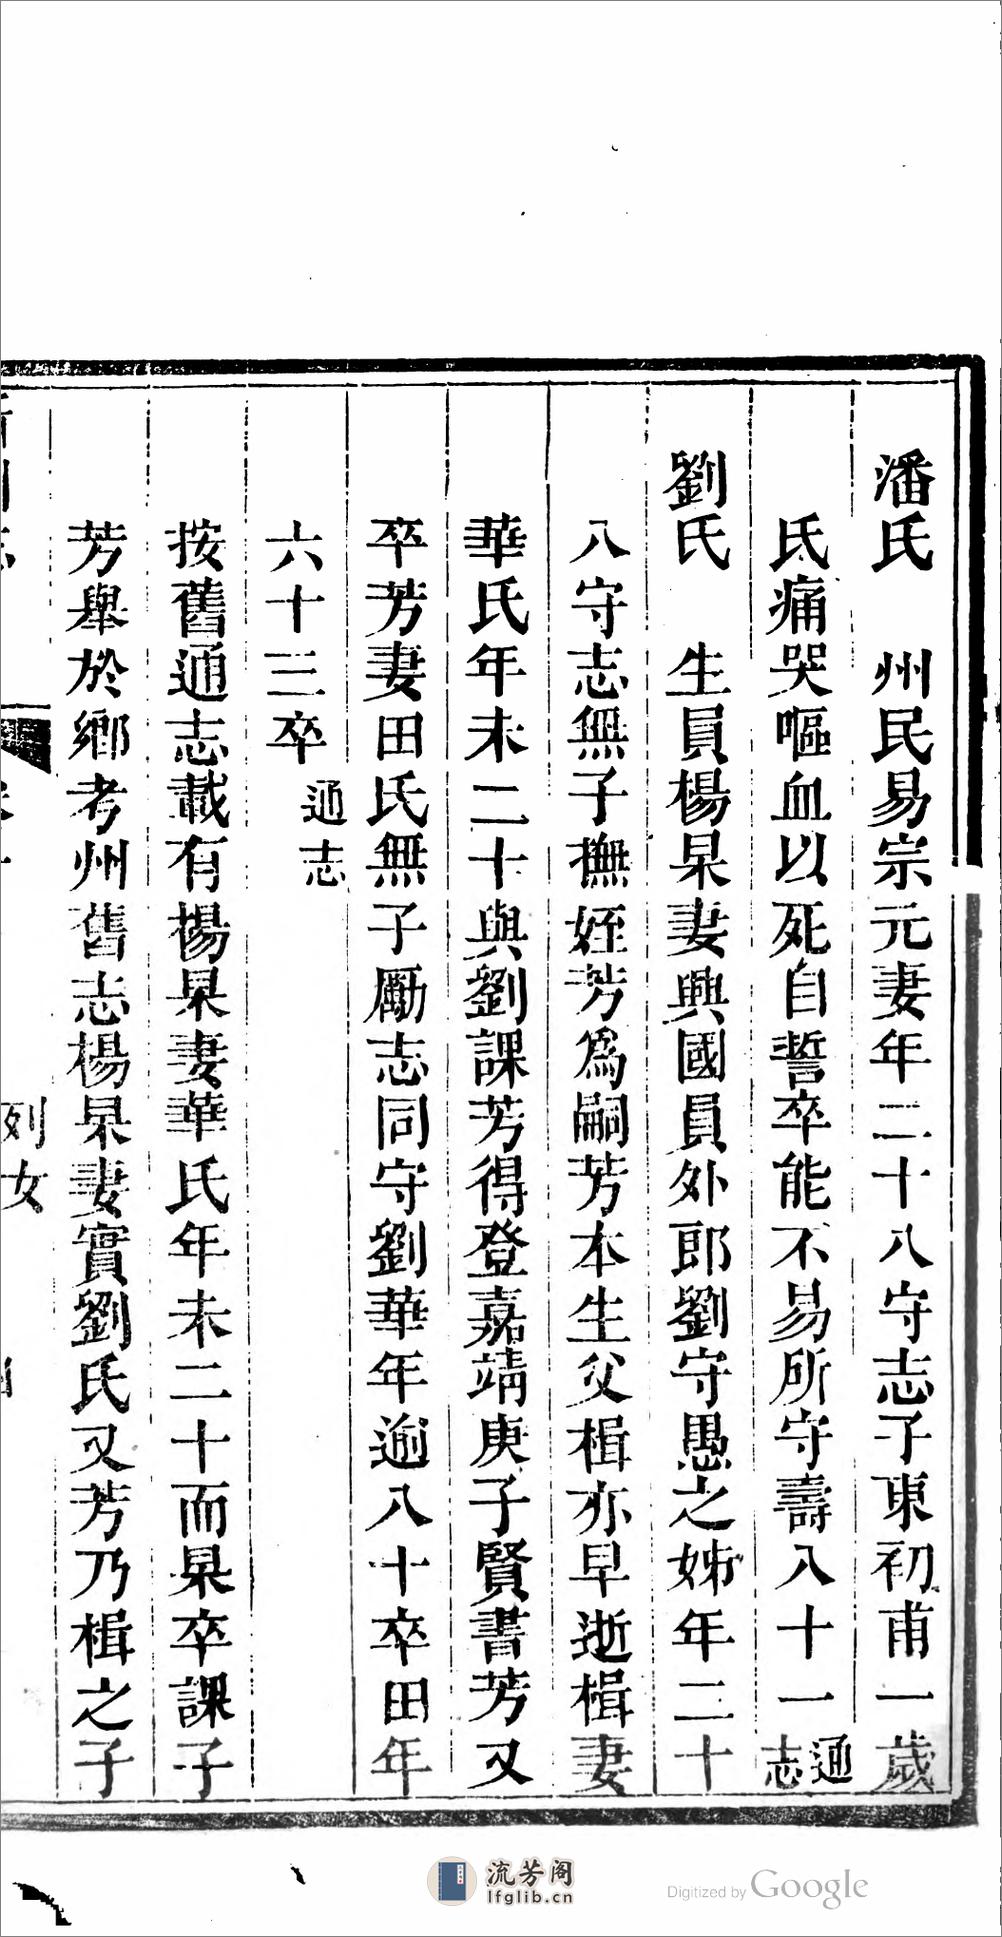 潘氏　州民易宗元妻年二十八守志子東初甫一歲
氏痛哭嘔血以死自誓卒能不易所守壽八十一通志
劉氏　生員楊杲妻興國員外郎劉守愚之姊年二十
八守志無子撫姪芳爲嗣芳本生父楫亦早逝楫妻
華氏年未二十與劉課芳得登嘉靖庚子賢書芳又
卒芳妻田氏無子勵志同守劉華年逾八十卒田年
六十三卒通志
按舊通志載有楊杲妻華氏年未二十而杲卒課子
芳舉於鄉考州舊志楊杲妻實劉氏又芳乃楫之子
列女
流芳阁
lfglib.cn
Digitized by Google